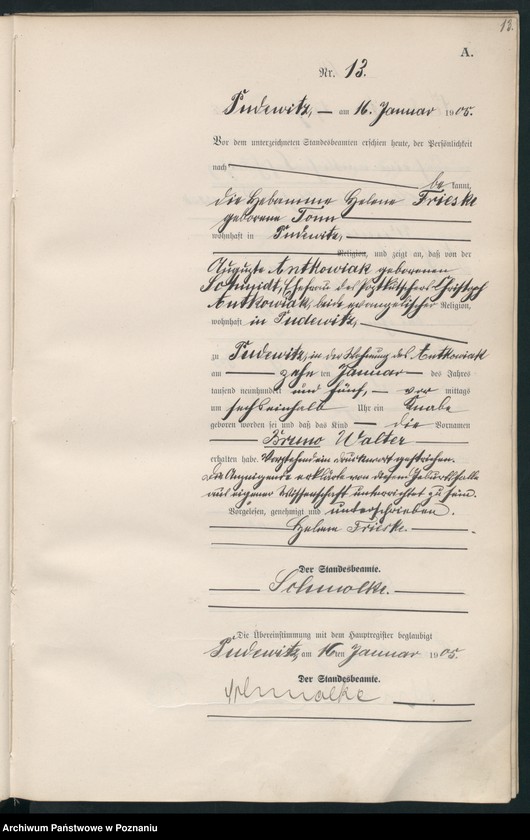 13.
A.
Nr. 13.
Pudewitz, — am 16. Januar 1905.
Vor dem unterzeichneten Standesbeamten erschien heute, der Persönlichkeit
nach
be kannt,
die Hebamme Helene Frieske
geborene Tonn
wohnhaft in Pudewitz,
Religion, und zeigt an, daß von der
Auguste Antkowiak geborenen
Schmidt, Ehefrau des Postkutschers Christoph
Antkowiak, beide evangelischer Religion,
wohnhaft in Pudewitz,
zu Pudewitz, in der Wohnung des Antkowiak
am — zehn ten Januar — des Jahres
tausend neunhundert und fünf, — vor mittags
um sechseinhalb Uhr ein Knabe
geboren worden sei und daß das Kind — die Vornamen
Bruno Walter
erhalten habe. Vorstehend ein Druckwort gestrichen.
Die Anzeigende erklärte von diesem Geburtsfalle
aus eigener Wissenschaft unterrichtet zu sein.
Vorgelesen, genehmigt und unterschrieben.
Helene Frieske.
Der Standesbeamte.
Schmolke.
Die Übereinstimmung mit dem Hauptregister beglaubigt
Pudewitz, am 16ten Januar 1905.
Der Standesbeamte.
Schmolke
Archiwum Państwowe w Poznaniu